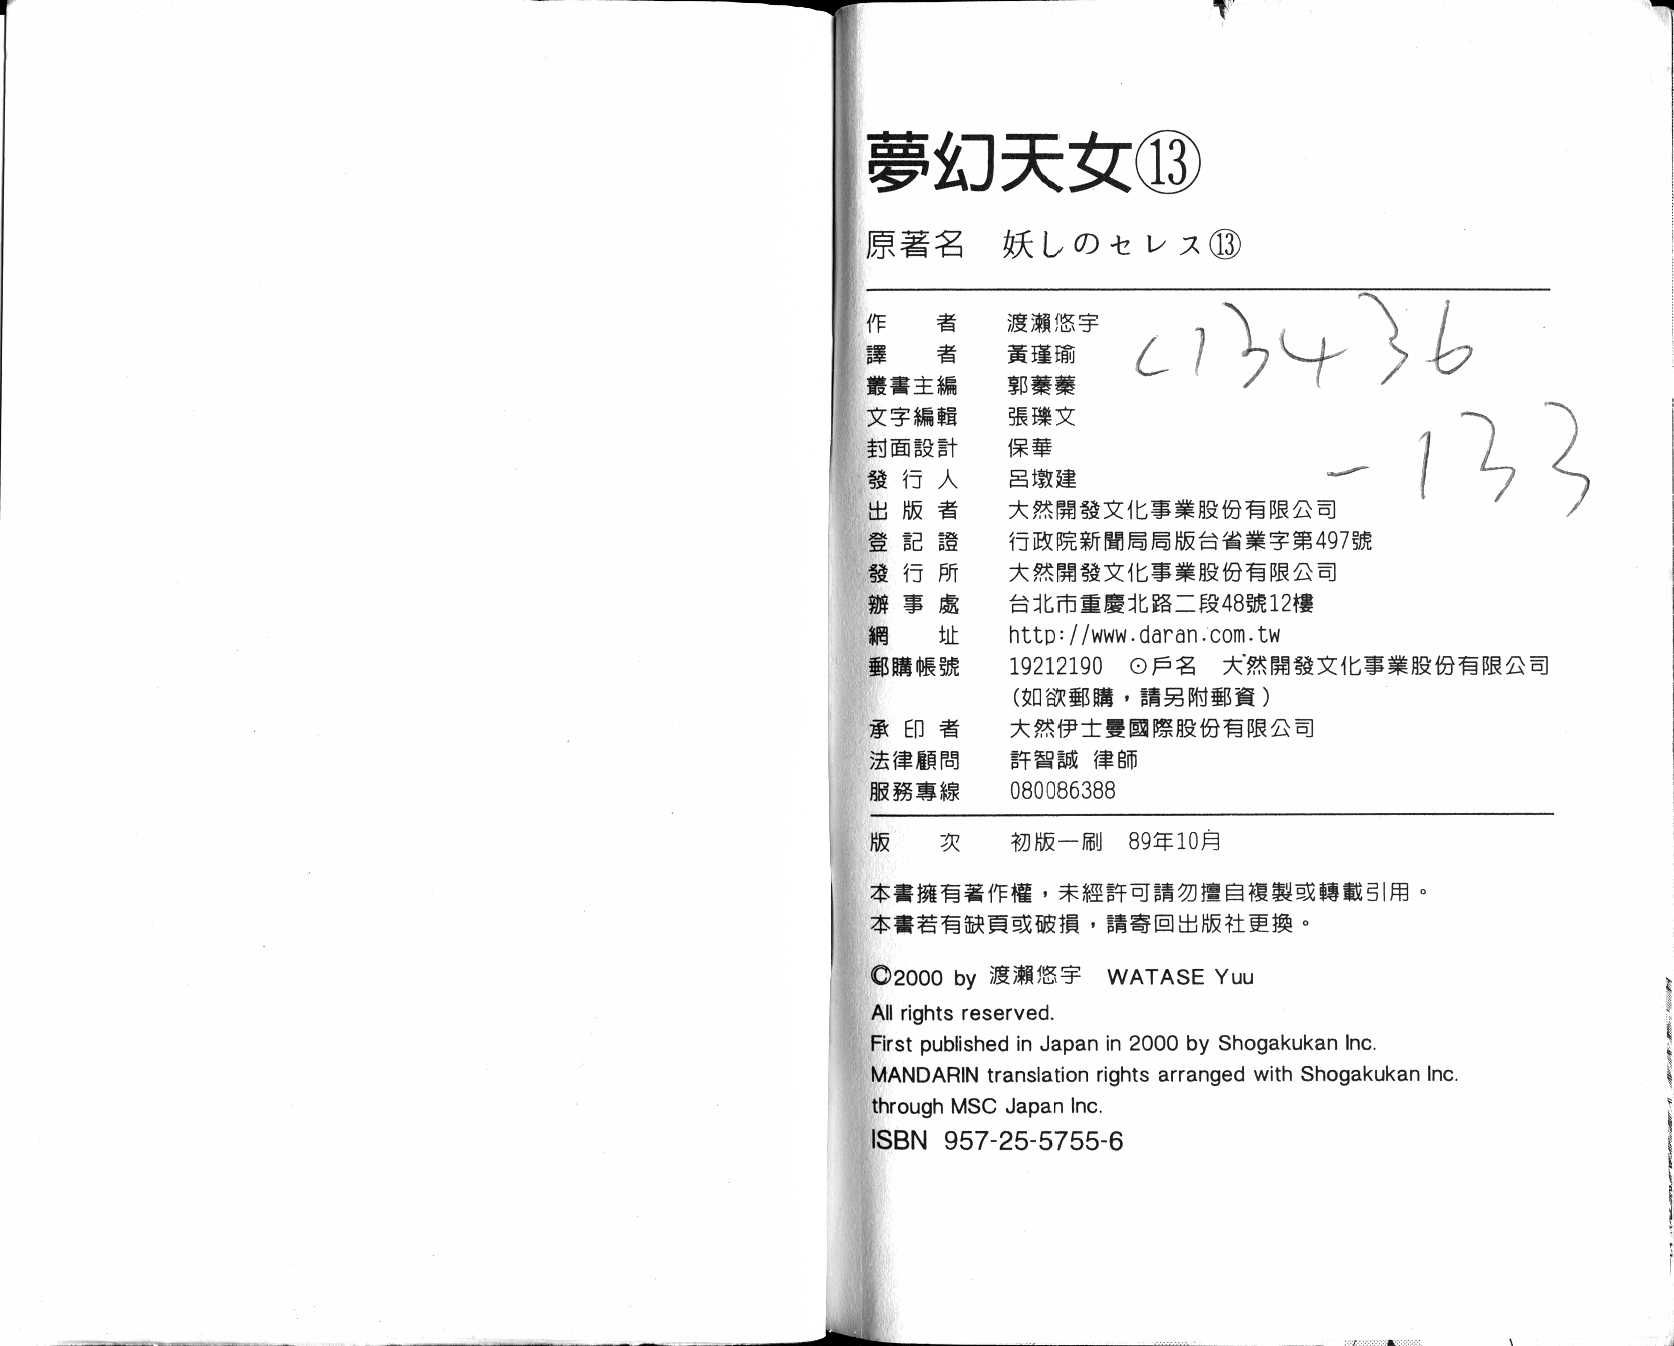 夢幻天女⑬
原著名　妖しのセレス⑬
作　　者　渡瀬悠宇
譯　　者　黃瑾瑜
叢書主編　郭蓁蓁
文字編輯　張瓅文
封面設計　保華
發 行 人　呂墩建
出 版 者　大然開發文化事業股份有限公司
登 記 證　行政院新聞局局版台省業字第497號
發 行 所　大然開發文化事業股份有限公司
辦 事 處　台北市重慶北路二段48號12樓
網　　址　http://www.daran.com.tw
郵購帳號　19212190　⊙戶名　大然開發文化事業股份有限公司
（如欲郵購，請另附郵資）
承 印 者　大然伊士曼國際股份有限公司
法律顧問　許智誠 律師
服務專線　080086388
C13436
-133
版　　次　初版一刷　89年10月
本書擁有著作權，未經許可請勿擅自複製或轉載引用。
本書若有缺頁或破損，請寄回出版社更換。
©2000 by 渡瀨悠宇　WATASE Yuu
All rights reserved.
First published in Japan in 2000 by Shogakukan Inc.
MANDARIN translation rights arranged with Shogakukan Inc.
through MSC Japan Inc.
ISBN 957-25-5755-6